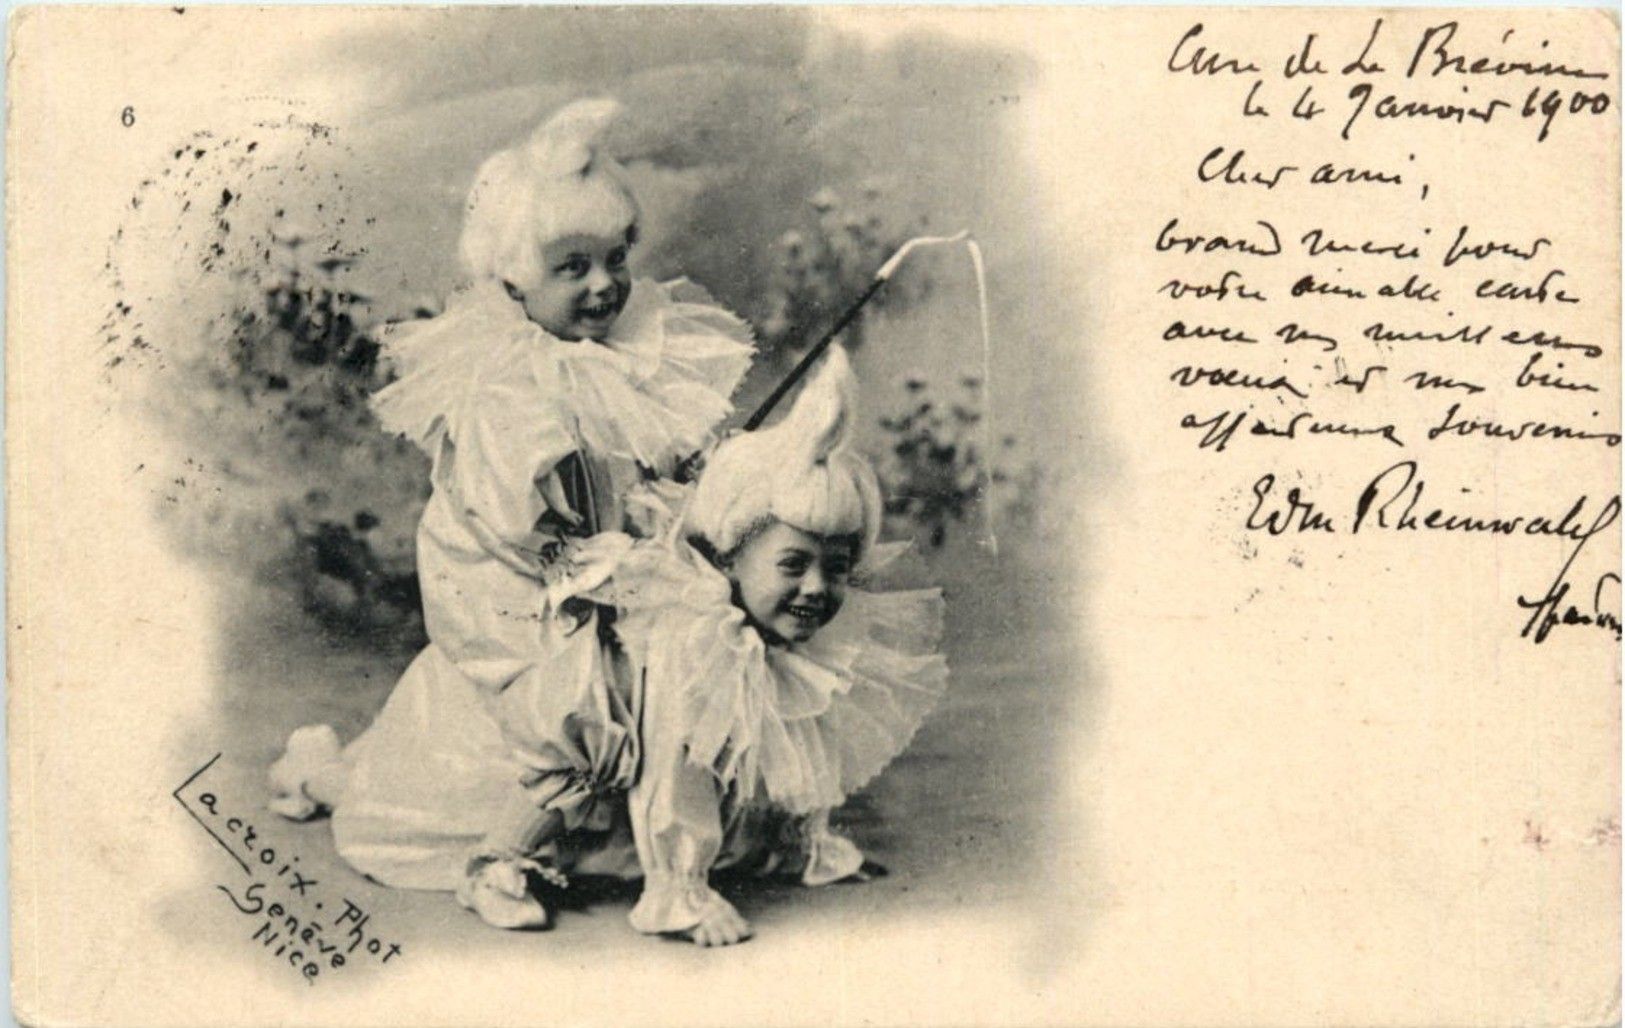 6
Cure de La Brévine
le 4 Janvier 1900
Cher ami,
Grand merci pour
votre aimable carte
avec mes meilleurs
vœux et mon bien
affectueux souvenir
Edm Rheinwald
Lacroix. Phot
Genève
Nice